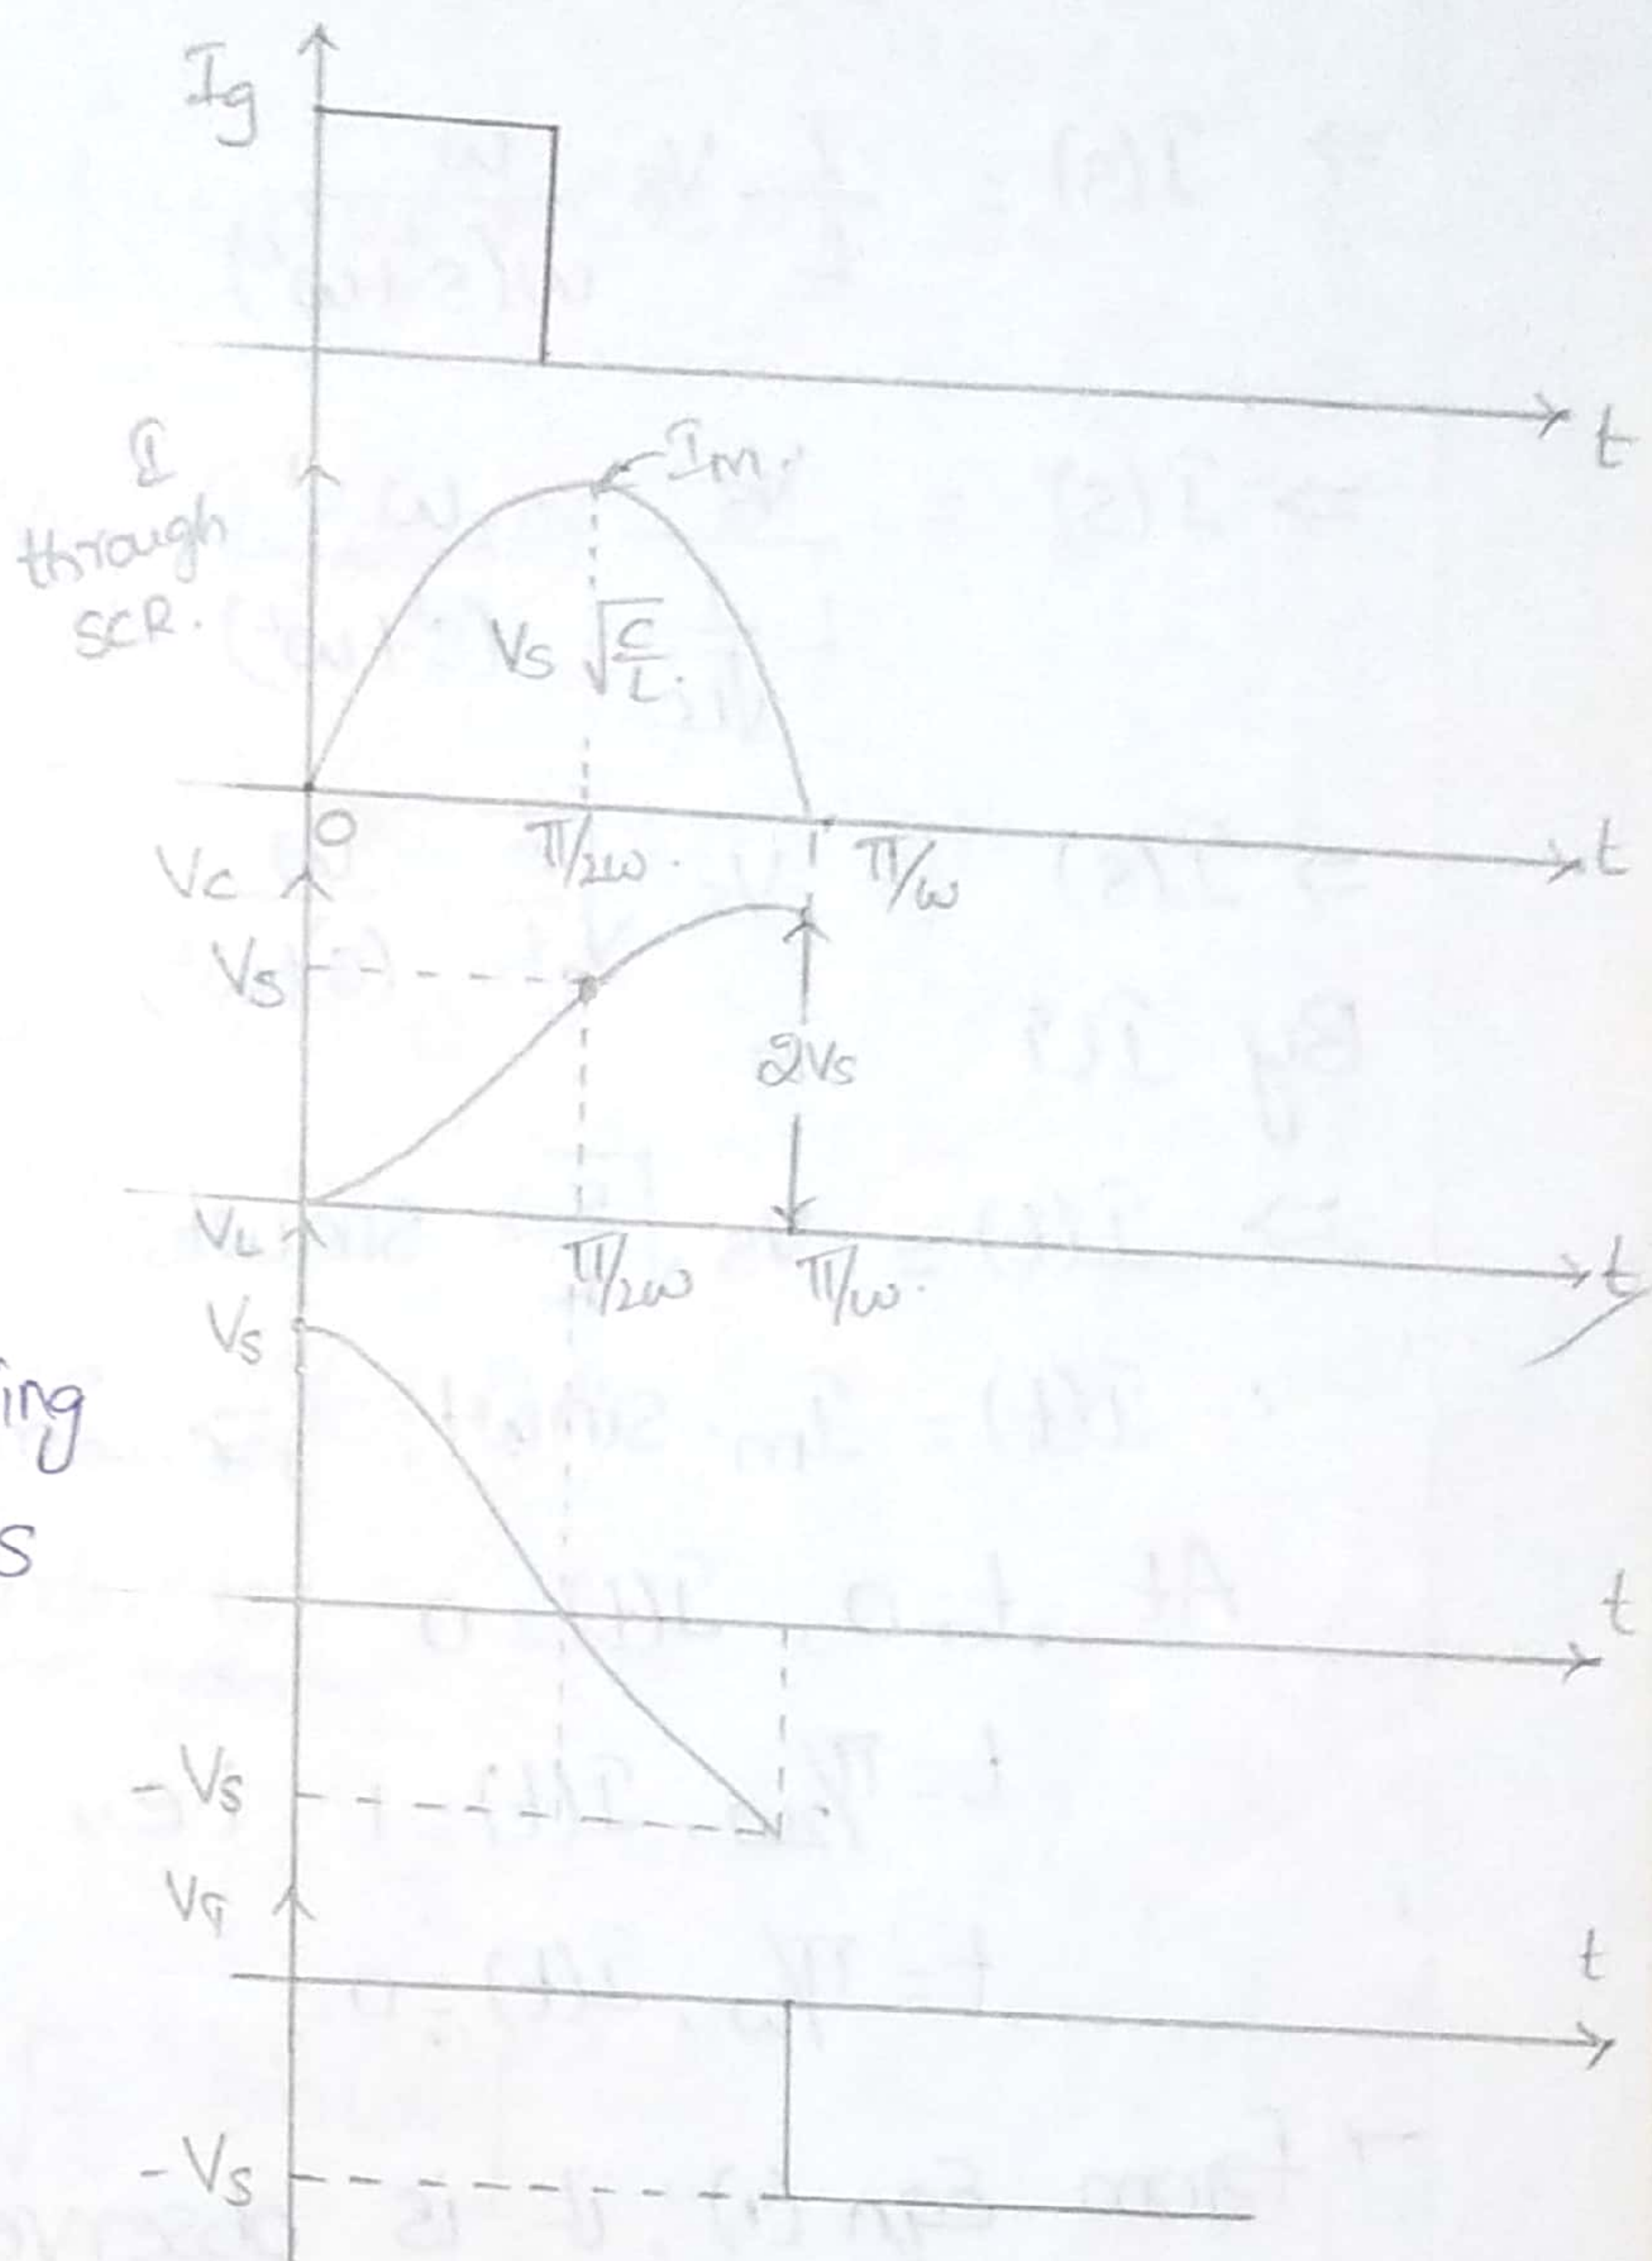 Ig
t
I
through
SCR.
Im.
Vs √C/L.
0
π/2ω.
π/ω
t
Vc
Vs
2Vs
π/2ω
π/ω.
t
VL
Vs
ing
s
t
-Vs
VT
t
-Vs